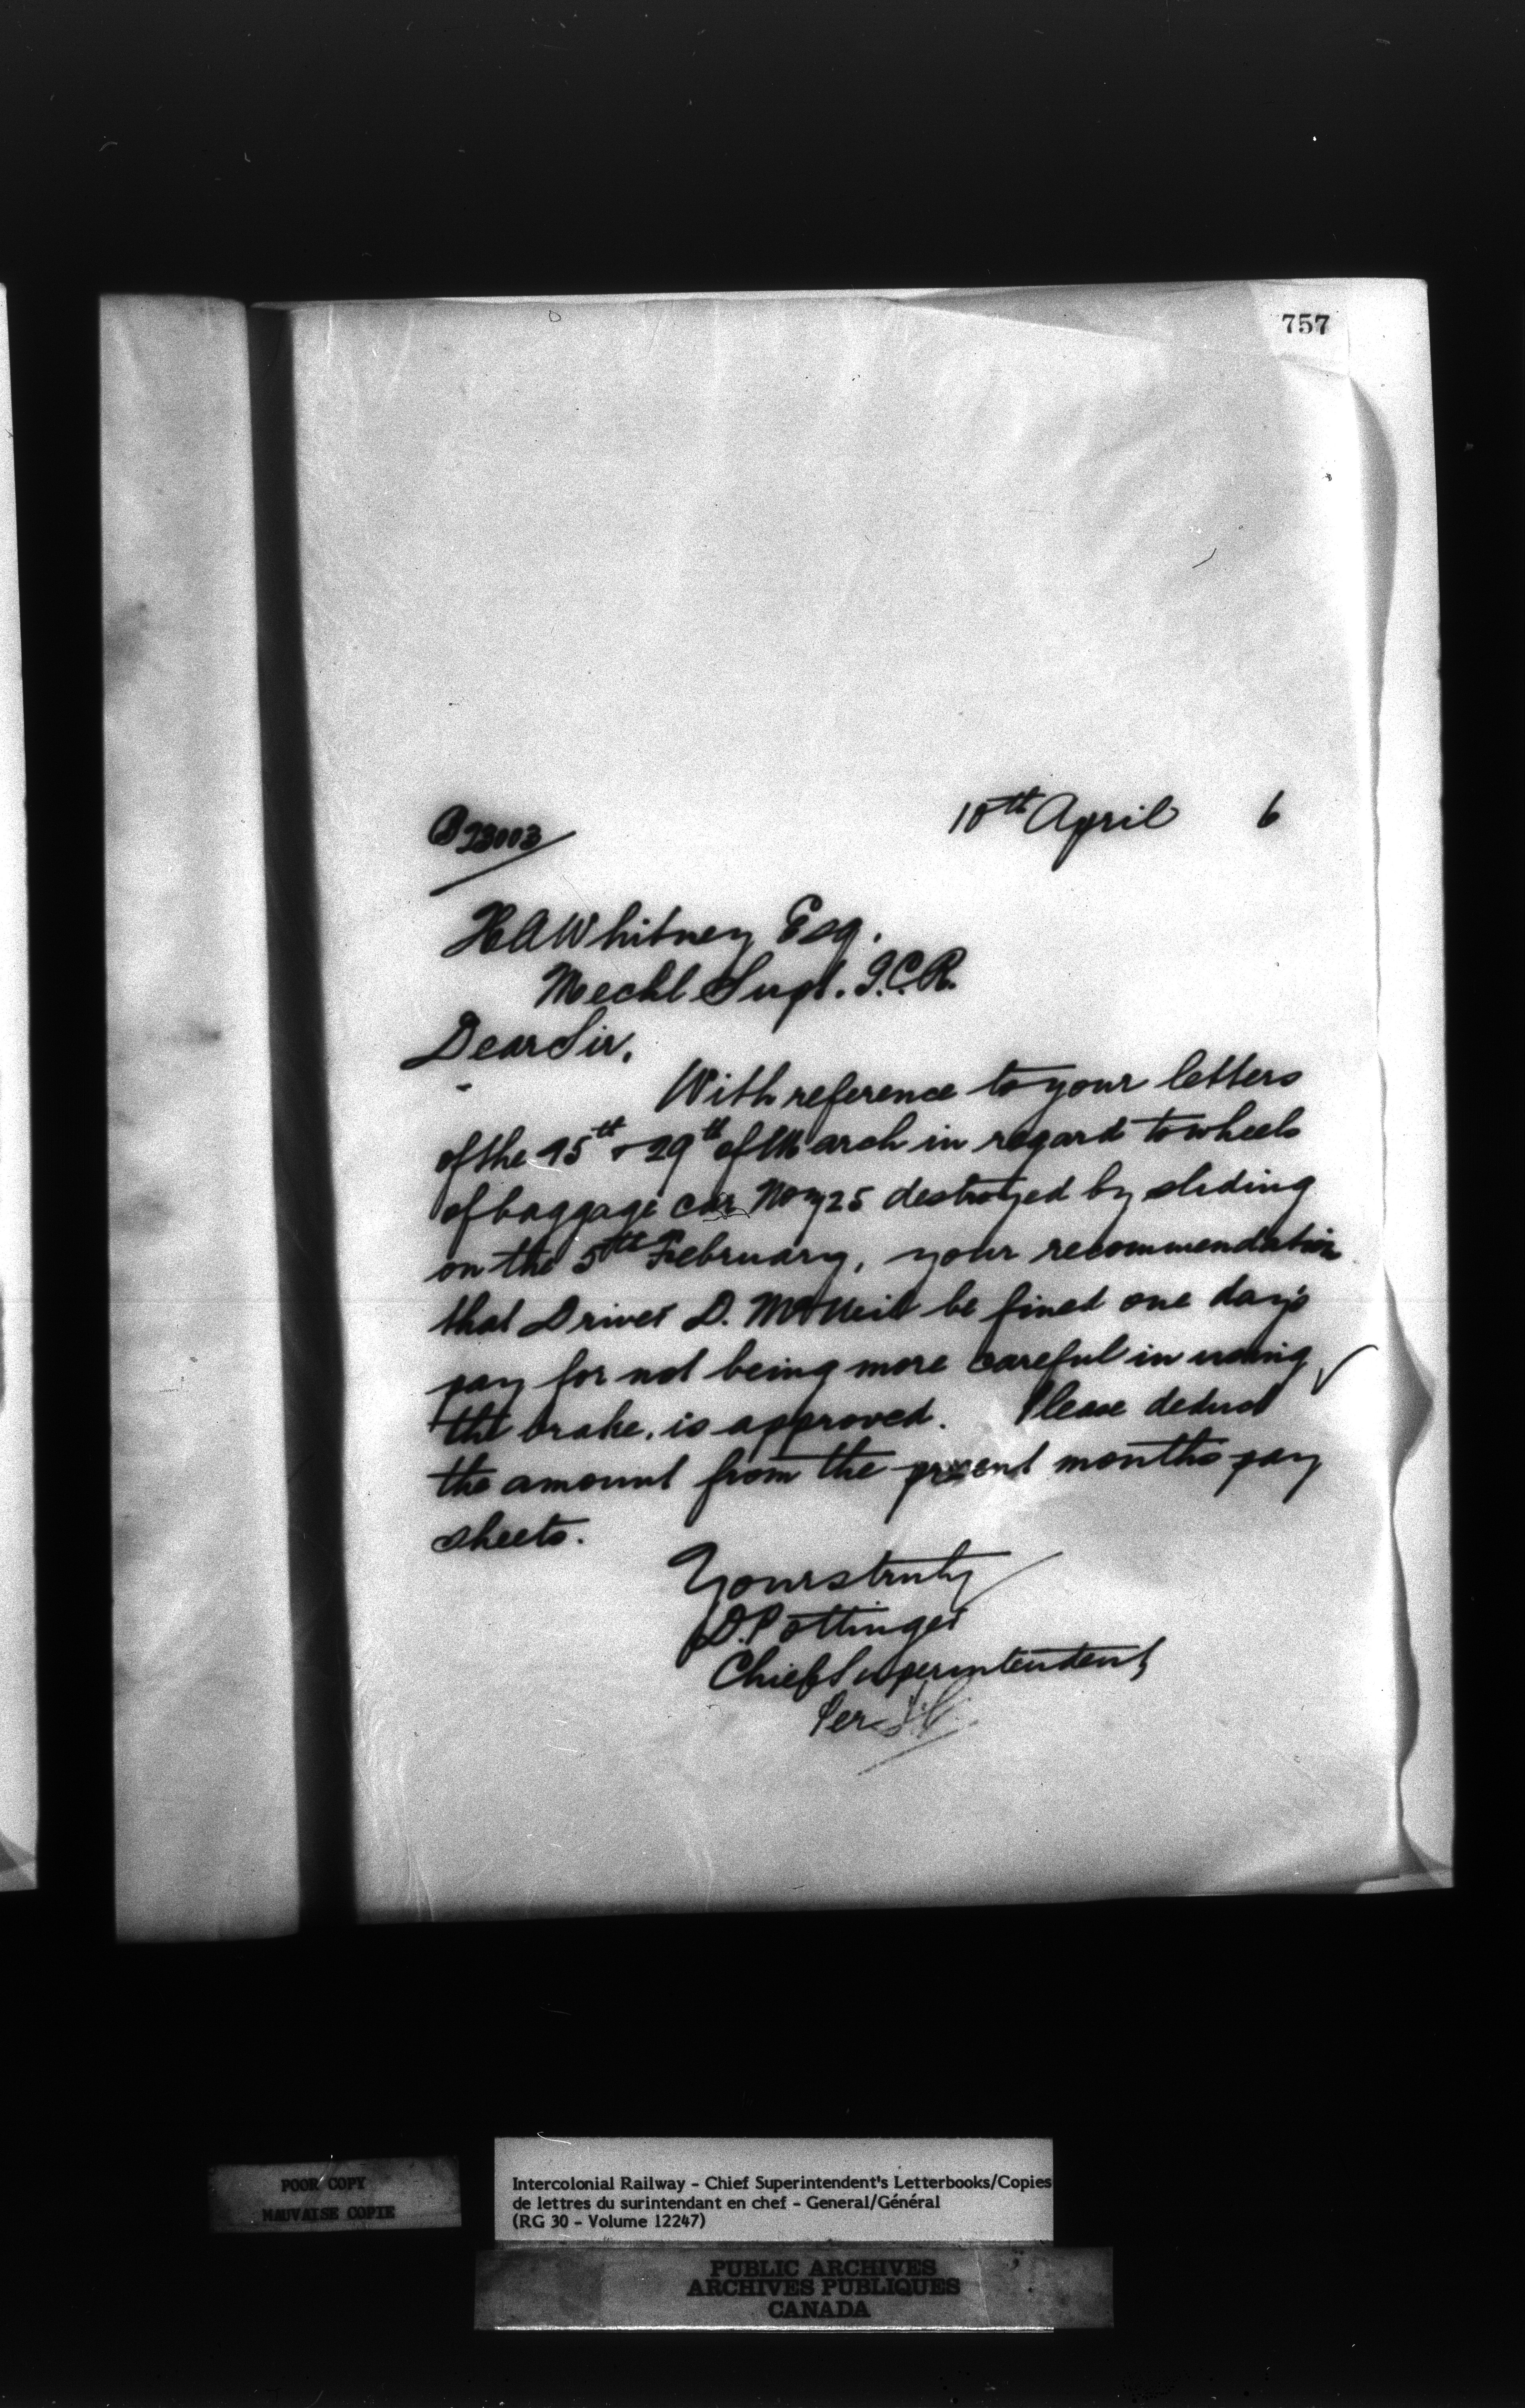 757
B23003
10th April 6
H A Whitney Esq.
Mechl Supt. I.C.R.
Dear Sir,
With reference to your letters
of the 15th & 29th of March in regard to wheels
of baggage car No 25 destroyed by sliding
on the 5th February, your recommendation
that Driver D. McNeil be fined one day's
pay for not being more careful in using
the brake, is approved. Please deduct
the amount from the present months pay
sheets.
Yours truly
D. Pottinger
Chief Superintendent
Per
POOR COPY
MAUVAISE COPIE
Intercolonial Railway - Chief Superintendent's Letterbooks/Copies
de lettres du surintendant en chef - General/Général
(RG 30 - Volume 12247)
PUBLIC ARCHIVES
ARCHIVES PUBLIQUES
CANADA